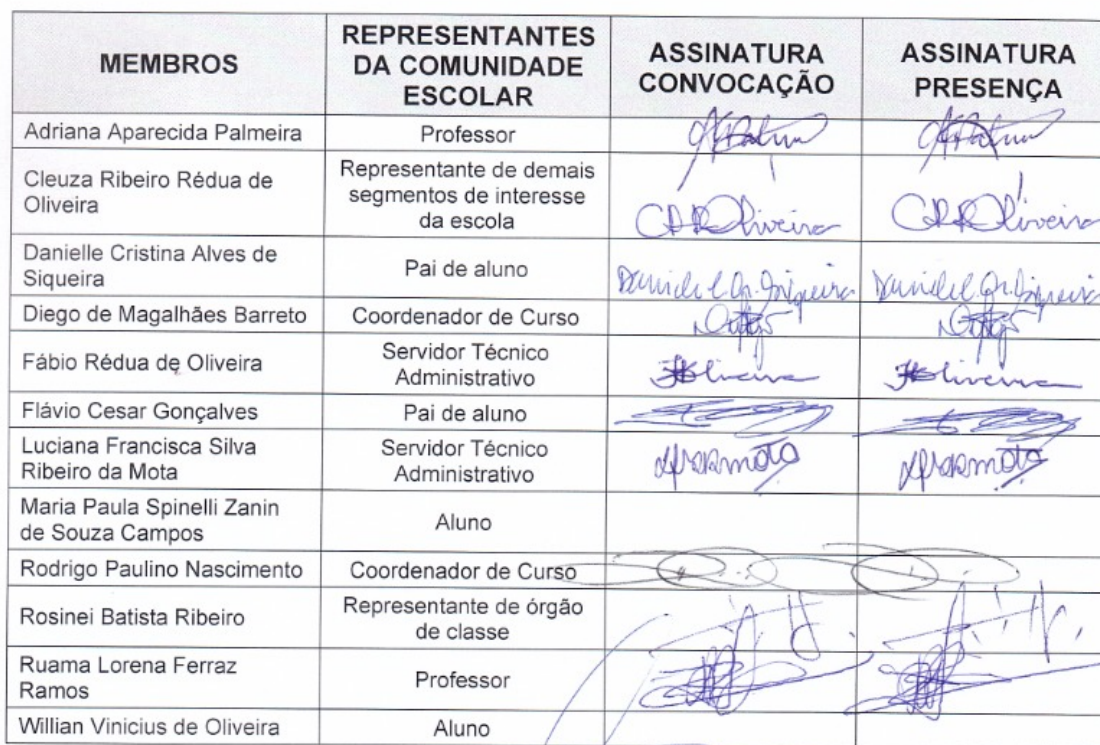 MEMBROS
REPRESENTANTES
DA COMUNIDADE
ESCOLAR
ASSINATURA
CONVOCAÇÃO
ASSINATURA
PRESENÇA
Adriana Aparecida Palmeira
Professor
Cleuza Ribeiro Rédua de
Oliveira
Representante de demais
segmentos de interesse
da escola
CRROliveira
CRROliveira
Danielle Cristina Alves de
Siqueira
Pai de aluno
Diego de Magalhães Barreto
Coordenador de Curso
Fábio Rédua de Oliveira
Servidor Técnico
Administrativo
Flávio Cesar Gonçalves
Pai de aluno
Luciana Francisca Silva
Ribeiro da Mota
Servidor Técnico
Administrativo
Maria Paula Spinelli Zanin
de Souza Campos
Aluno
Rodrigo Paulino Nascimento
Coordenador de Curso
Rosinei Batista Ribeiro
Representante de órgão
de classe
Ruama Lorena Ferraz
Ramos
Professor
Willian Vinicius de Oliveira
Aluno